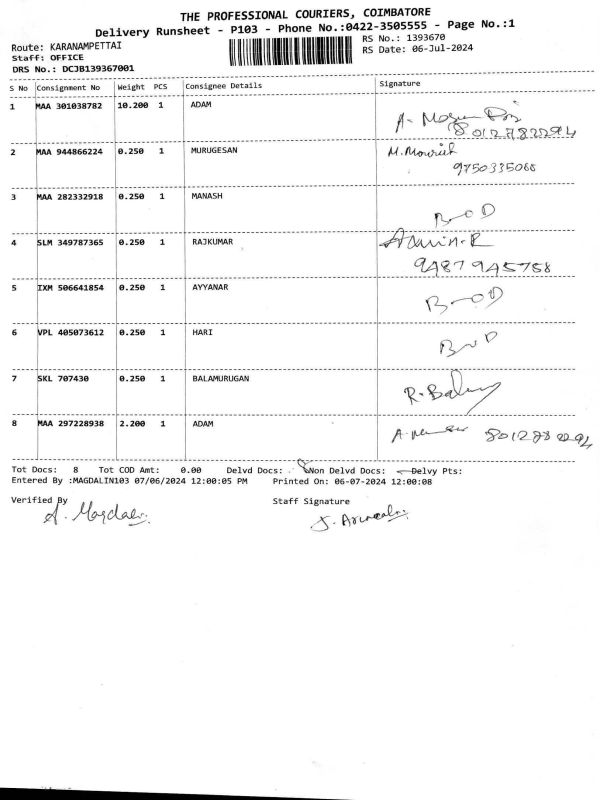 THE PROFESSIONAL COURIERS, COIMBATORE
Delivery Runsheet - P103 - Phone No.:0422-3505555 - Page No.:1
Route: KARANAMPETTAI
RS No.: 1393670
Staff: OFFICE
RS Date: 06-Jul-2024
DRS No.: DCJB139367001
S No Consignment No Weight PCS Consignee Details Signature
1 MAA 301038782 10.200 1 ADAM A-
8012782294
2 MAA 944866224 0.250 1 MURUGESAN M.
9750335068
3 MAA 282332918 0.250 1 MANASH
4 SLM 349787365 0.250 1 RAJKUMAR
9487945758
5 IXM 506641854 0.250 1 AYYANAR
6 VPL 405073612 0.250 1 HARI
7 SKL 707430 0.250 1 BALAMURUGAN R.
8 MAA 297228938 2.200 1 ADAM A.
Tot Docs: 8 Tot COD Amt: 0.00 Delvd Docs: Non Delvd Docs: Delvy Pts:
Entered By :MAGDALIN103 07/06/2024 12:00:05 PM Printed On: 06-07-2024 12:00:08
Verified By Staff Signature
A. J.